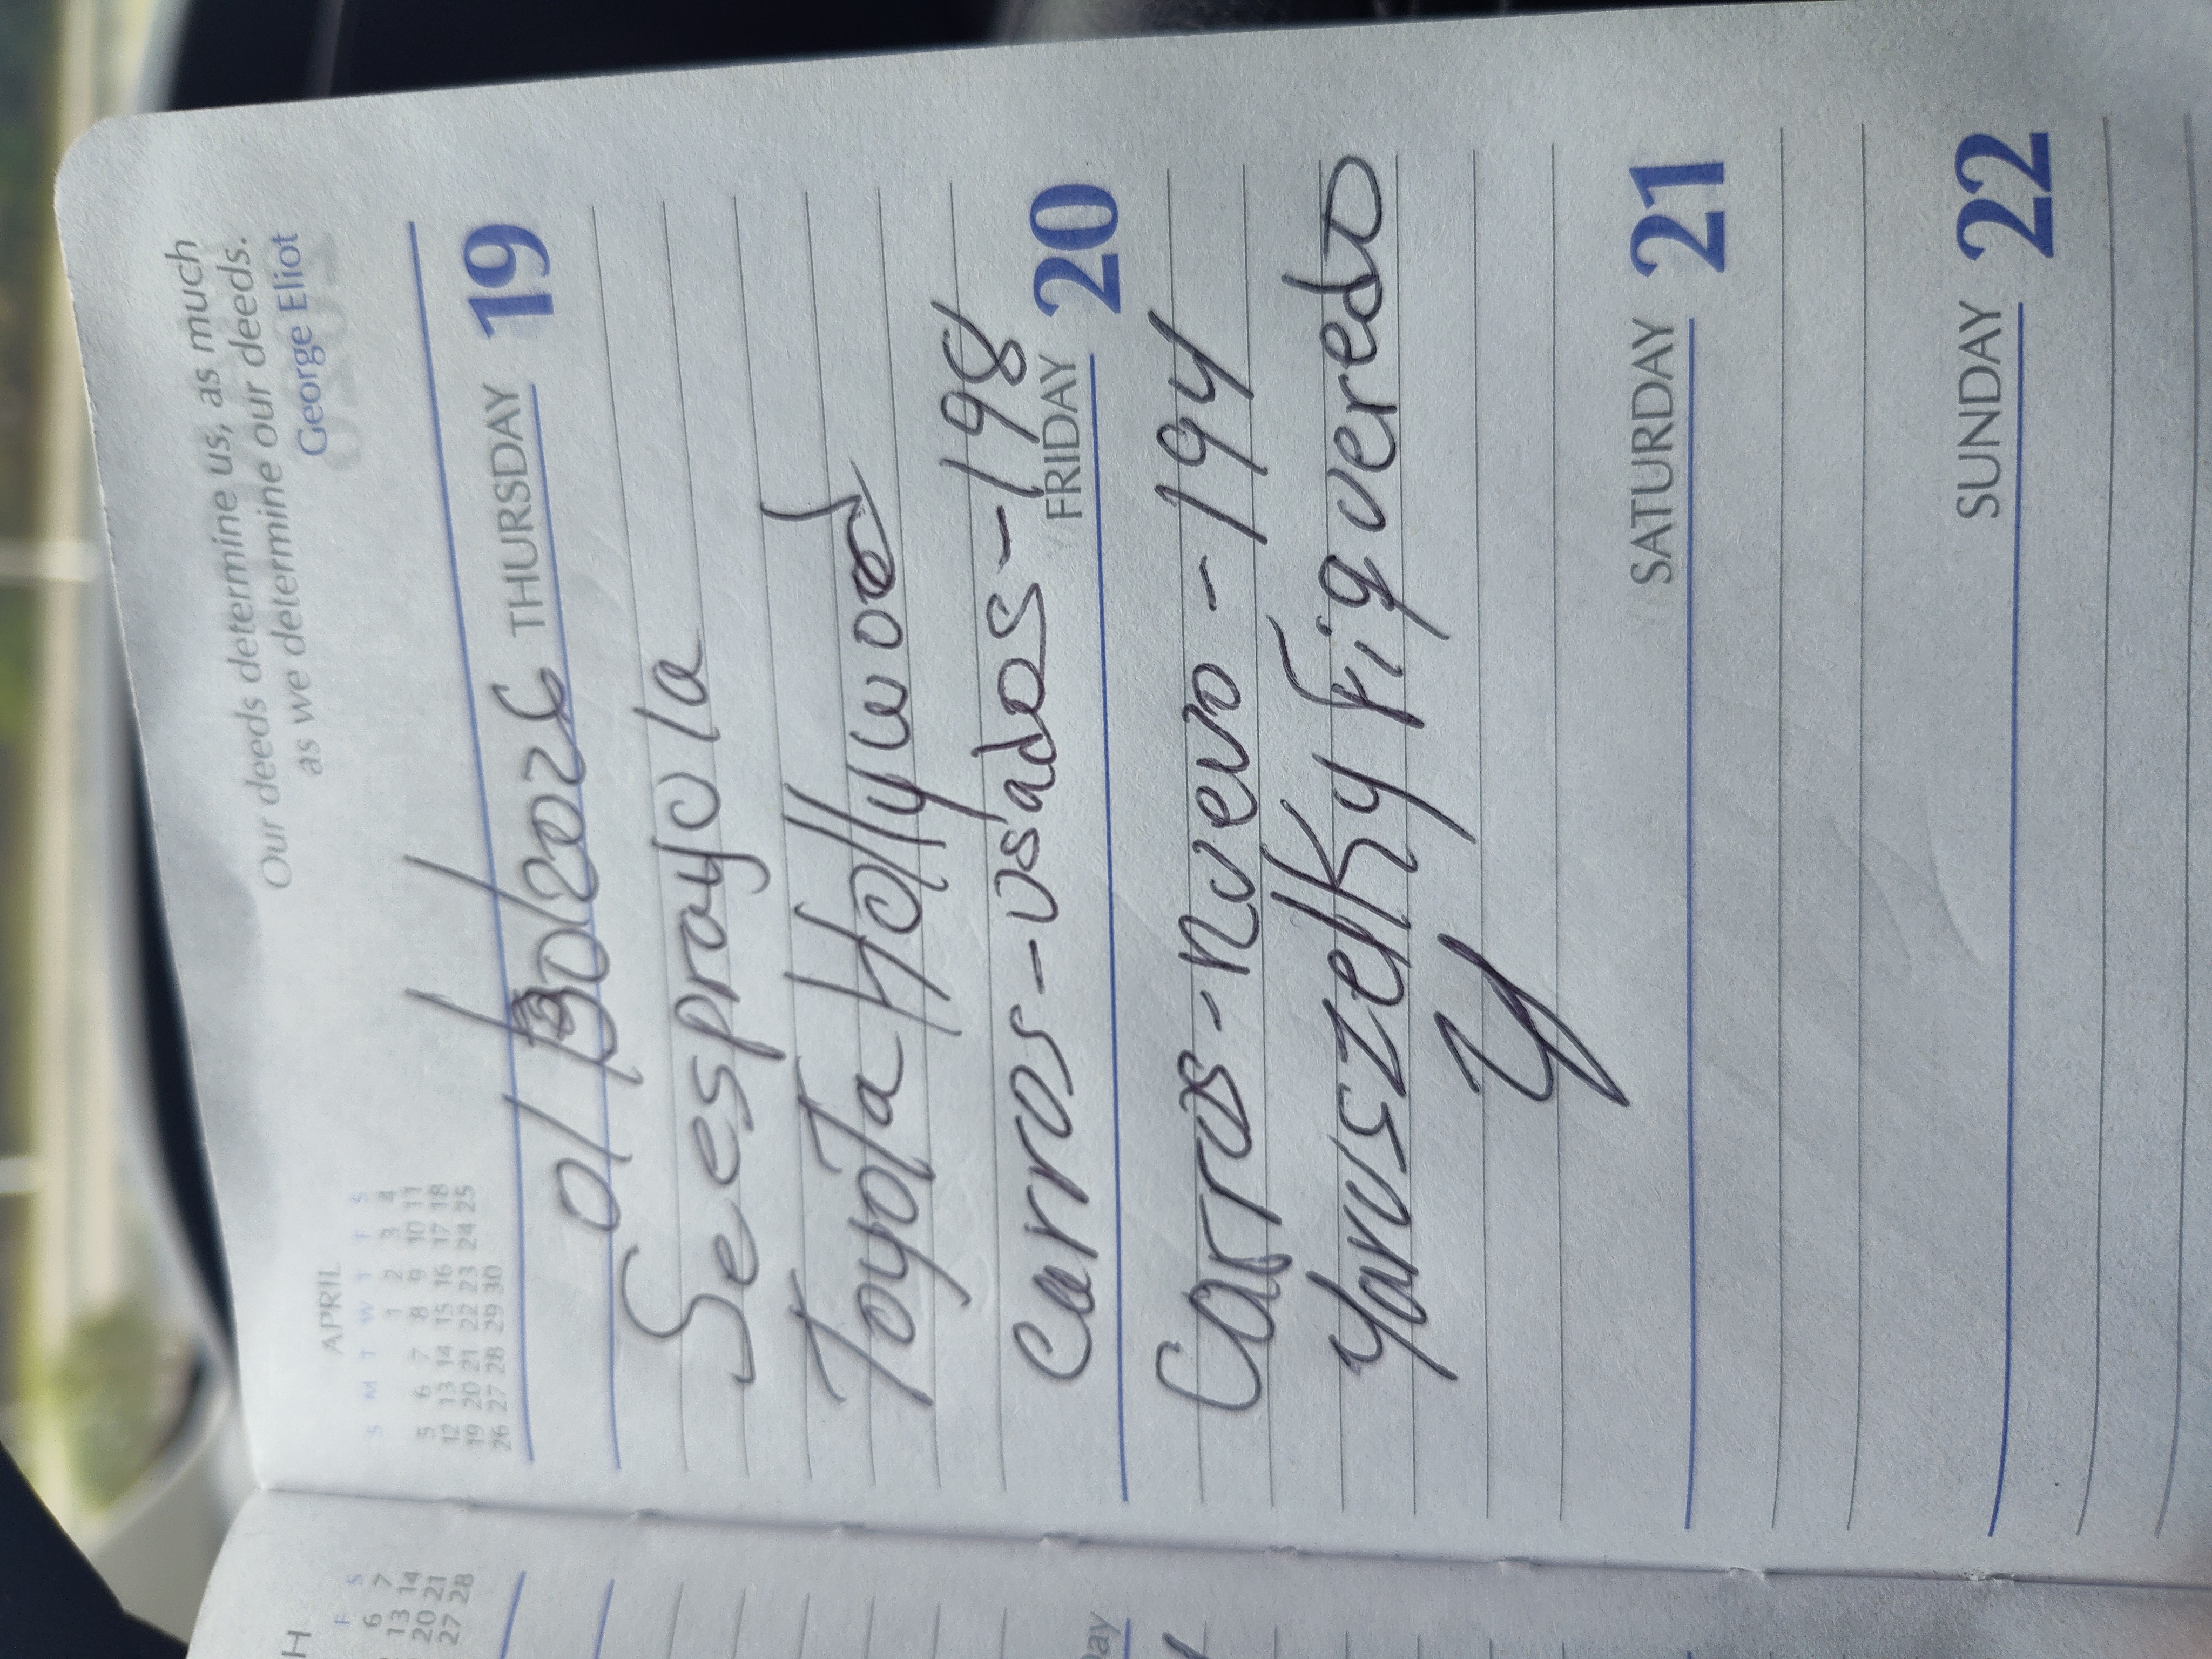 Our deeds determine us, as much
as we determine our deeds.
George Eliot
APRIL
S M T W T F S
1 2 3 4
5 6 7 8 9 10 11
12 13 14 15 16 17 18
19 20 21 22 23 24 25
26 27 28 29 30
01/30/2026 THURSDAY 19
Se esprayo la
Toyota Hollywood
carros-usados-198
FRIDAY 20
Carros-nuevo-194
Yaruszelky Figueredo
Y
SATURDAY 21
SUNDAY 22
H
F S
6 7
13 14
20 21
27 28
Day